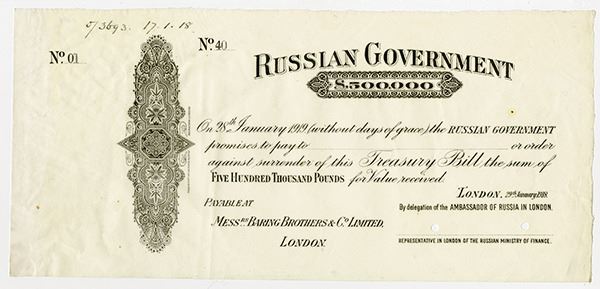 5/3693. 17-1-18
No. 01
No. 40
RUSSIAN GOVERNMENT
£500.000
On 28th January 1919 (without days of grace) the RUSSIAN GOVERNMENT
promises to pay to or order
against surrender of this Treasury Bill the sum of
FIVE HUNDRED THOUSAND POUNDS for Value received.
LONDON, 29th January, 1918.
PAYABLE AT
By delegation of the AMBASSADOR OF RUSSIA IN LONDON.
MESSRS BARING BROTHERS & CO LIMITED,
LONDON.
REPRESENTATIVE IN LONDON OF THE RUSSIAN MINISTRY OF FINANCE.